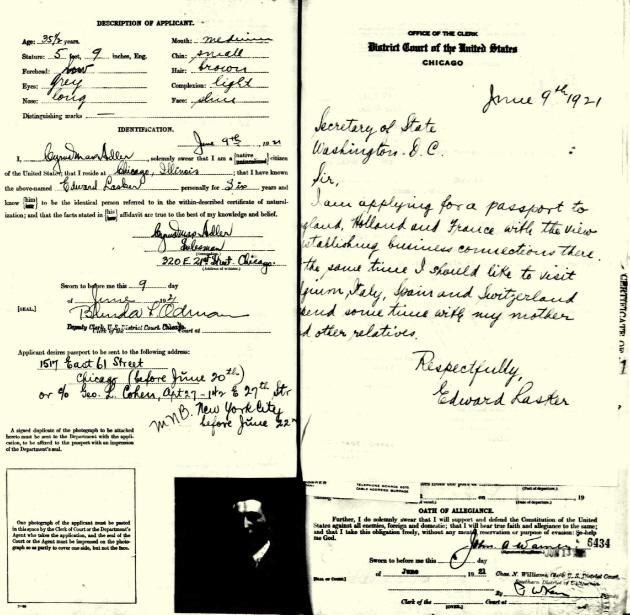 DESCRIPTION OF APPLICANT.
Age: 35½ years. Mouth: medium
Stature: 5 feet, 9 inches, Eng. Chin: small
Forehead: low Hair: brown
Eyes: grey Complexion: light
Nose: long Face:
Distinguishing marks —
IDENTIFICATION.
June 9th, 1921
I, Adler, solemnly swear that I am a [native naturalized] citizen
of the United States; that I reside at Chicago, Illinois; that I have known
the above-named Edward Lasker personally for Six years and
know [him] to be the identical person referred to in the within-described certificate of natural-
ization; and that the facts stated in [his] affidavit are true to the best of my knowledge and belief.
Adler
Salesman
320 E. 21st Street Chicago.
(Address of witness.)
Sworn to before me this 9 day
of June, 1921
[SEAL.]
Deputy Clerk U.S. District Court Chicago. Court at
Applicant desires passport to be sent to the following address:
1517 East 61 Street
Chicago (before June 20th)
or c/o Geo. L. Cohen, Apt 27 - 142 E 27th Str
M.N.B. New York City
before June 22nd
A signed duplicate of the photograph to be attached
hereto must be sent to the Department with the appli-
cation, to be affixed to the passport with an impression
of the Department's seal.
One photograph of the applicant must be pasted
in this space by the Clerk of Court or the Department's
Agent who takes the application, and the seal of the
Court or the Agent must be impressed on the photo-
graph so as partly to cover one side, but not the face.
OFFICE OF THE CLERK
District Court of the United States
CHICAGO
June 9th 1921
Secretary of State
Washington D. C.
Sir,
I am applying for a passport to
gland, Holland and France with the view
stablishing business connections there.
the same time I should like to visit
gium, Italy, Spain and Switzerland
end some time with my mother
d other relatives.
Respectfully,
Edward Lasker
TELEPHONE MONROE
CABLE ADDRESS
on, 19
(Port of departure.)
(Date of departure.)
OATH OF ALLEGIANCE.
Further, I do solemnly swear that I will support and defend the Constitution of the United
States against all enemies, foreign and domestic; that I will bear true faith and allegiance to the same;
and that I take this obligation freely, without any mental reservation or purpose of evasion: So help
me God.
John A
6434
Sworn to before me this day
of June, 1921 Chas. N. Williams, Clerk U. S. District Court,
Southern District of California
By
Clerk of the Court at
(OVER.)